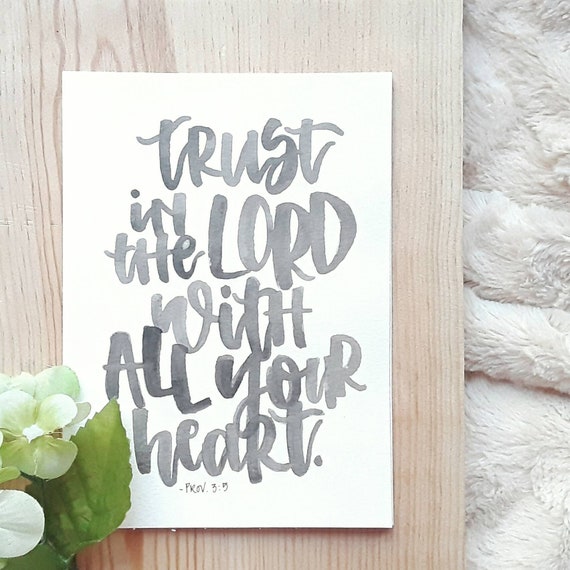 trust
in the LORD
with
ALL your
heart.
- PROV. 3:5